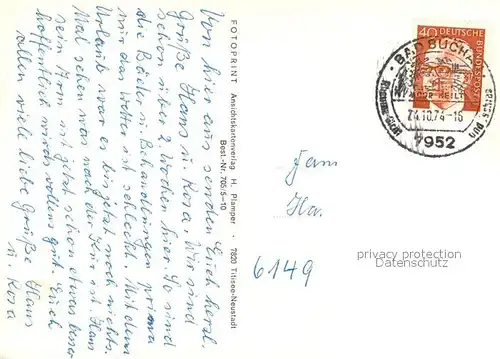 Von hier aus senden Euch herzl.
Grüße Hans u. Rosa. Wir sind
schon über 2 Wochen hier. So sind
die Bäder u. Behandlungen prima
nur das Wetter ist schlecht. Mit dem
Urlaub war es bis jetzt noch nichts.
Mal sehen was nach der Kur ist. Hans
sein Arm ist jetzt schon etwas besser
hoffentlich wird's vollens gut. Euch
allen viel liebe Grüße Hans
u. Rosa
FOTOPRINT Ansichtskartenverlag H. Plamper · 7820 Titisee-Neustadt
Best.-Nr. 705/5-10
40 DEUTSCHE BUNDESPOST
BAD BUCHAU
MOOR HEILT
24.10.74-15
7952
Fam.
Ha.
6149
privacy protection
Datenschutz